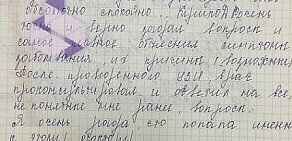 абсолютно спокойно.
и верно задавал вопросы и
самое главное объяснил симптомы
заболевания, их причины (возможные)
После проведенного УЗИ, врач
проконсультировал и ответил на все,
не понятные мне ранее, вопросы.
Я очень рада что попала именно
к этому